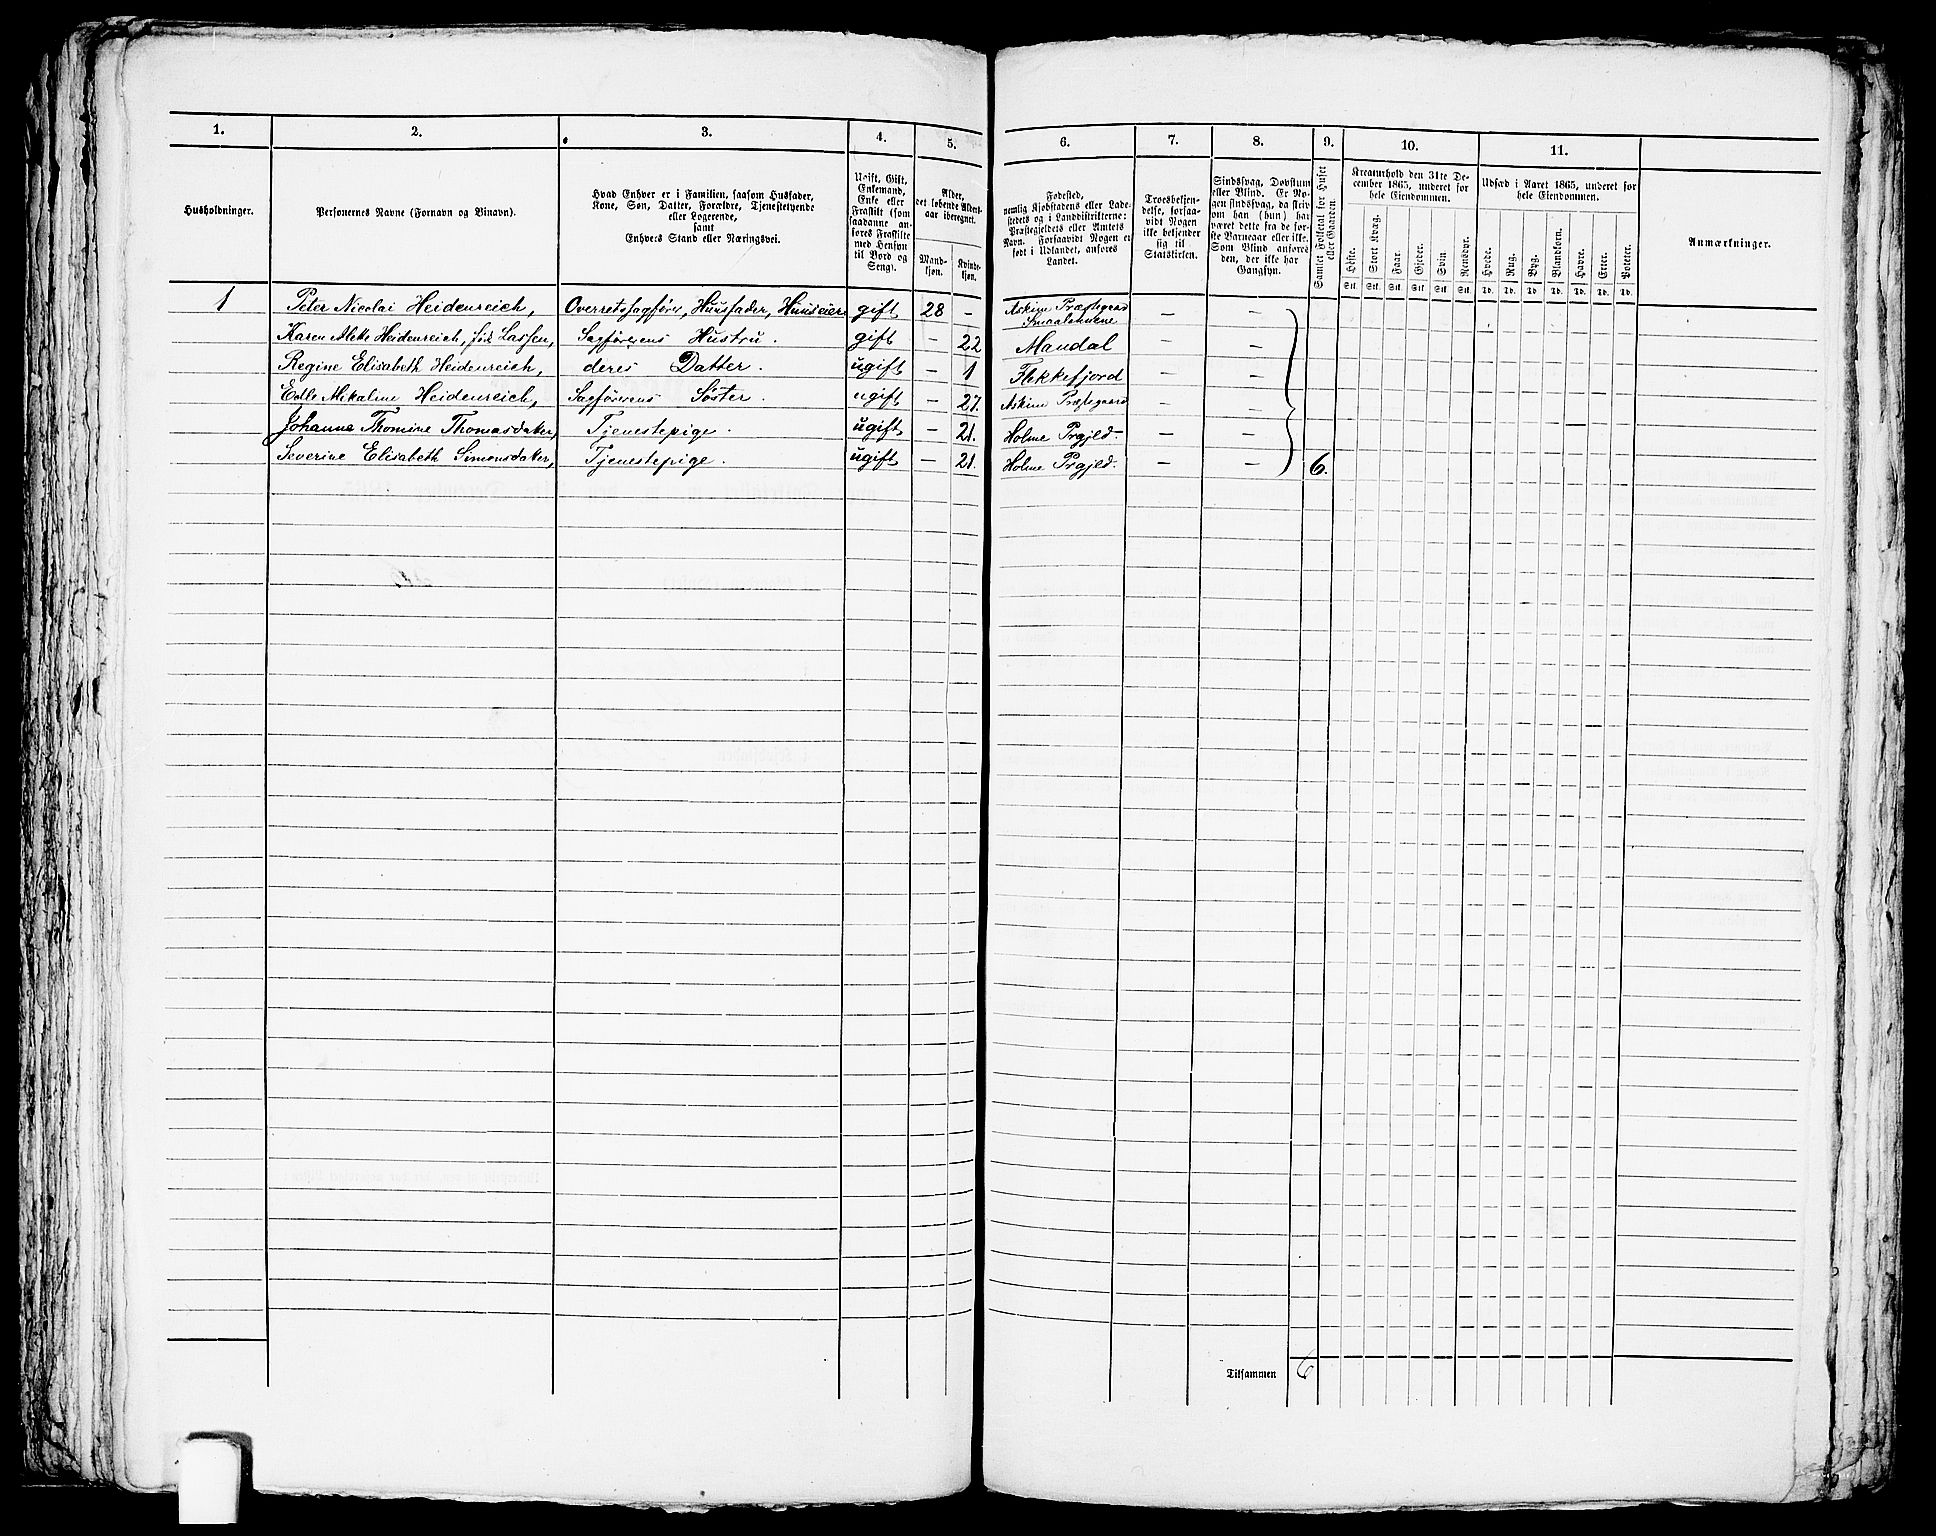 1. 2. 3. 4. 5. 6. 7. 8. 9. 10. 11.
Husholdninger.
Personernes Navne (Fornavn og Binavn).
Hvad Enhver er i Familien, saasom Husfader,
Kone, Søn, Datter, Forældre, Tjenestetyende
eller Logerende,
samt
Enhvers Stand eller Næringsvei.
Ugift, Gift,
Enkemand,
Enke eller
Fraskilt (som
saadanne an-
føres Fraskilte
med Hensyn
til Bord og
Seng).
Alder,
det løbende Alders-
aar iberegnet.
Mand-
kjøn.
Kvinde-
kjøn.
Fødested,
nemlig Kjøbstadens eller Lade-
stedets og i Landdistrikterne:
Præstegjeldets eller Amtets
Navn. Forsaavidt Nogen er
født i Udlandet, anføres
Landet.
Troesbekjen-
delse, forsaa-
vidt Nogen
ikke bekjender
sig til
Statskirken.
Sindssvag, Døvstum
eller Blind. Er No-
gen sindssvag, da skriv
om han (hun) har
været dette fra de før-
ste Barneaar eller ikke.
Som Blind anføres
den, der ikke har
Gangsyn.
Samlet Folketal for Huset
eller Gaarden.
Kreaturhold den 31te De-
cember 1865, underet for
hele Eiendommen.
Heste. Stort Kvæg. Faar. Gjeder. Svin. Rensdyr.
Stk. Stk. Stk. Stk. Stk. Stk.
Udsæd i Aaret 1865, underet for
hele Eiendommen.
Hvede. Rug. Byg. Blandkorn. Havre. Erter. Poteter.
Td. Td. Td. Td. Td. Td. Td.
Anmærkninger.
1 Peter Nicolai Heidenreich, Overretssagfører, Huusfader, Huuseier gift 28 – Askim Præstegaard Smaalenene – –
Karen Heidenreich, født Lassen, Sagførerens Hustru. gift – 22 Mandal – –
Regine Elisabeth Heidenreich, deres Datter. ugift – 1 Flekkefjord – –
Edle Mikaline Heidenreich, Sagførerens Søster. ugift – 27. Askim Præstegaard – –
Johanne Thomine Thomasdater, Tjenestepige. ugift – 21. Holme Prgjeld – –
Severine Elisabeth Simonsdater, Tjenestepige. ugift – 21. Holme Prgjeld. – – 6.
Tilsammen 6